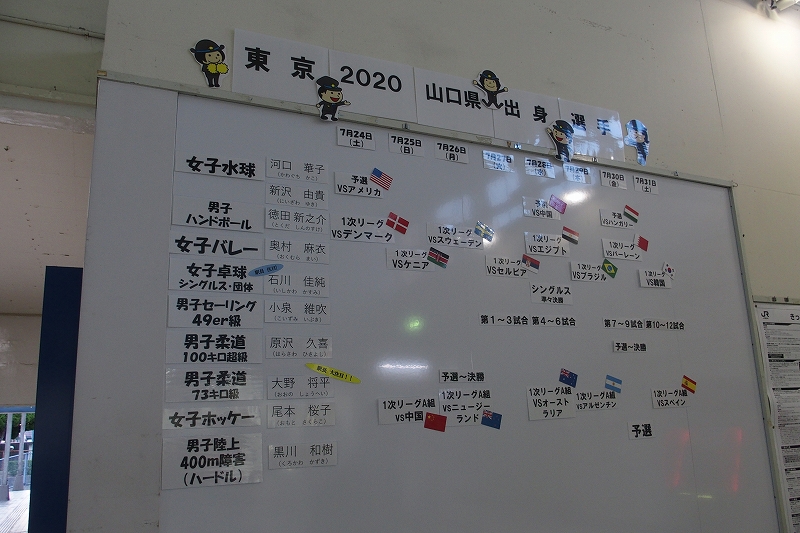 東京 2020 山口県出身選手
7月24日
(土)
7月25日
(日)
7月26日
(月)
7月27日
(火)
7月28日
(水)
7月29日
(木)
7月30日
(金)
7月31日
(土)
女子水球
河口 華子
(かわぐち かこ)
新沢 由貴
(にいざわ ゆき)
予選
VSアメリカ
予選
VS中国
予選
VSハンガリー
男子
ハンドボール
徳田 新之介
(とくだ しんのすけ)
1次リーグ
VSデンマーク
1次リーグ
VSスウェーデン
1次リーグ
VSエジプト
1次リーグ
VSバーレーン
女子バレー
奥村 麻衣
(おくむら まい)
1次リーグ
VSケニア
1次リーグ
VSセルビア
1次リーグ
VSブラジル
1次リーグ
VS韓国
女子卓球
シングルス・団体
石川 佳純
(いしかわ かすみ)
シングルス
準々決勝
男子セーリング
49er級
小泉 維吹
(こいずみ いぶき)
第1~3試合
第4~6試合
第7~9試合
第10~12試合
男子柔道
100キロ超級
原沢 久喜
(はらさわ ひさよし)
予選~決勝
男子柔道
73キロ級
大野 将平
(おおの しょうへい)
予選~決勝
女子ホッケー
尾本 桜子
(おもと さくらこ)
1次リーグA組
VS中国
1次リーグA組
VSニュージー
ランド
1次リーグA組
VSオースト
ラリア
1次リーグA組
VSアルゼンチン
1次リーグA組
VSスペイン
男子陸上
400m障害
(ハードル)
黒川 和樹
(くろかわ かずき)
予選
JR